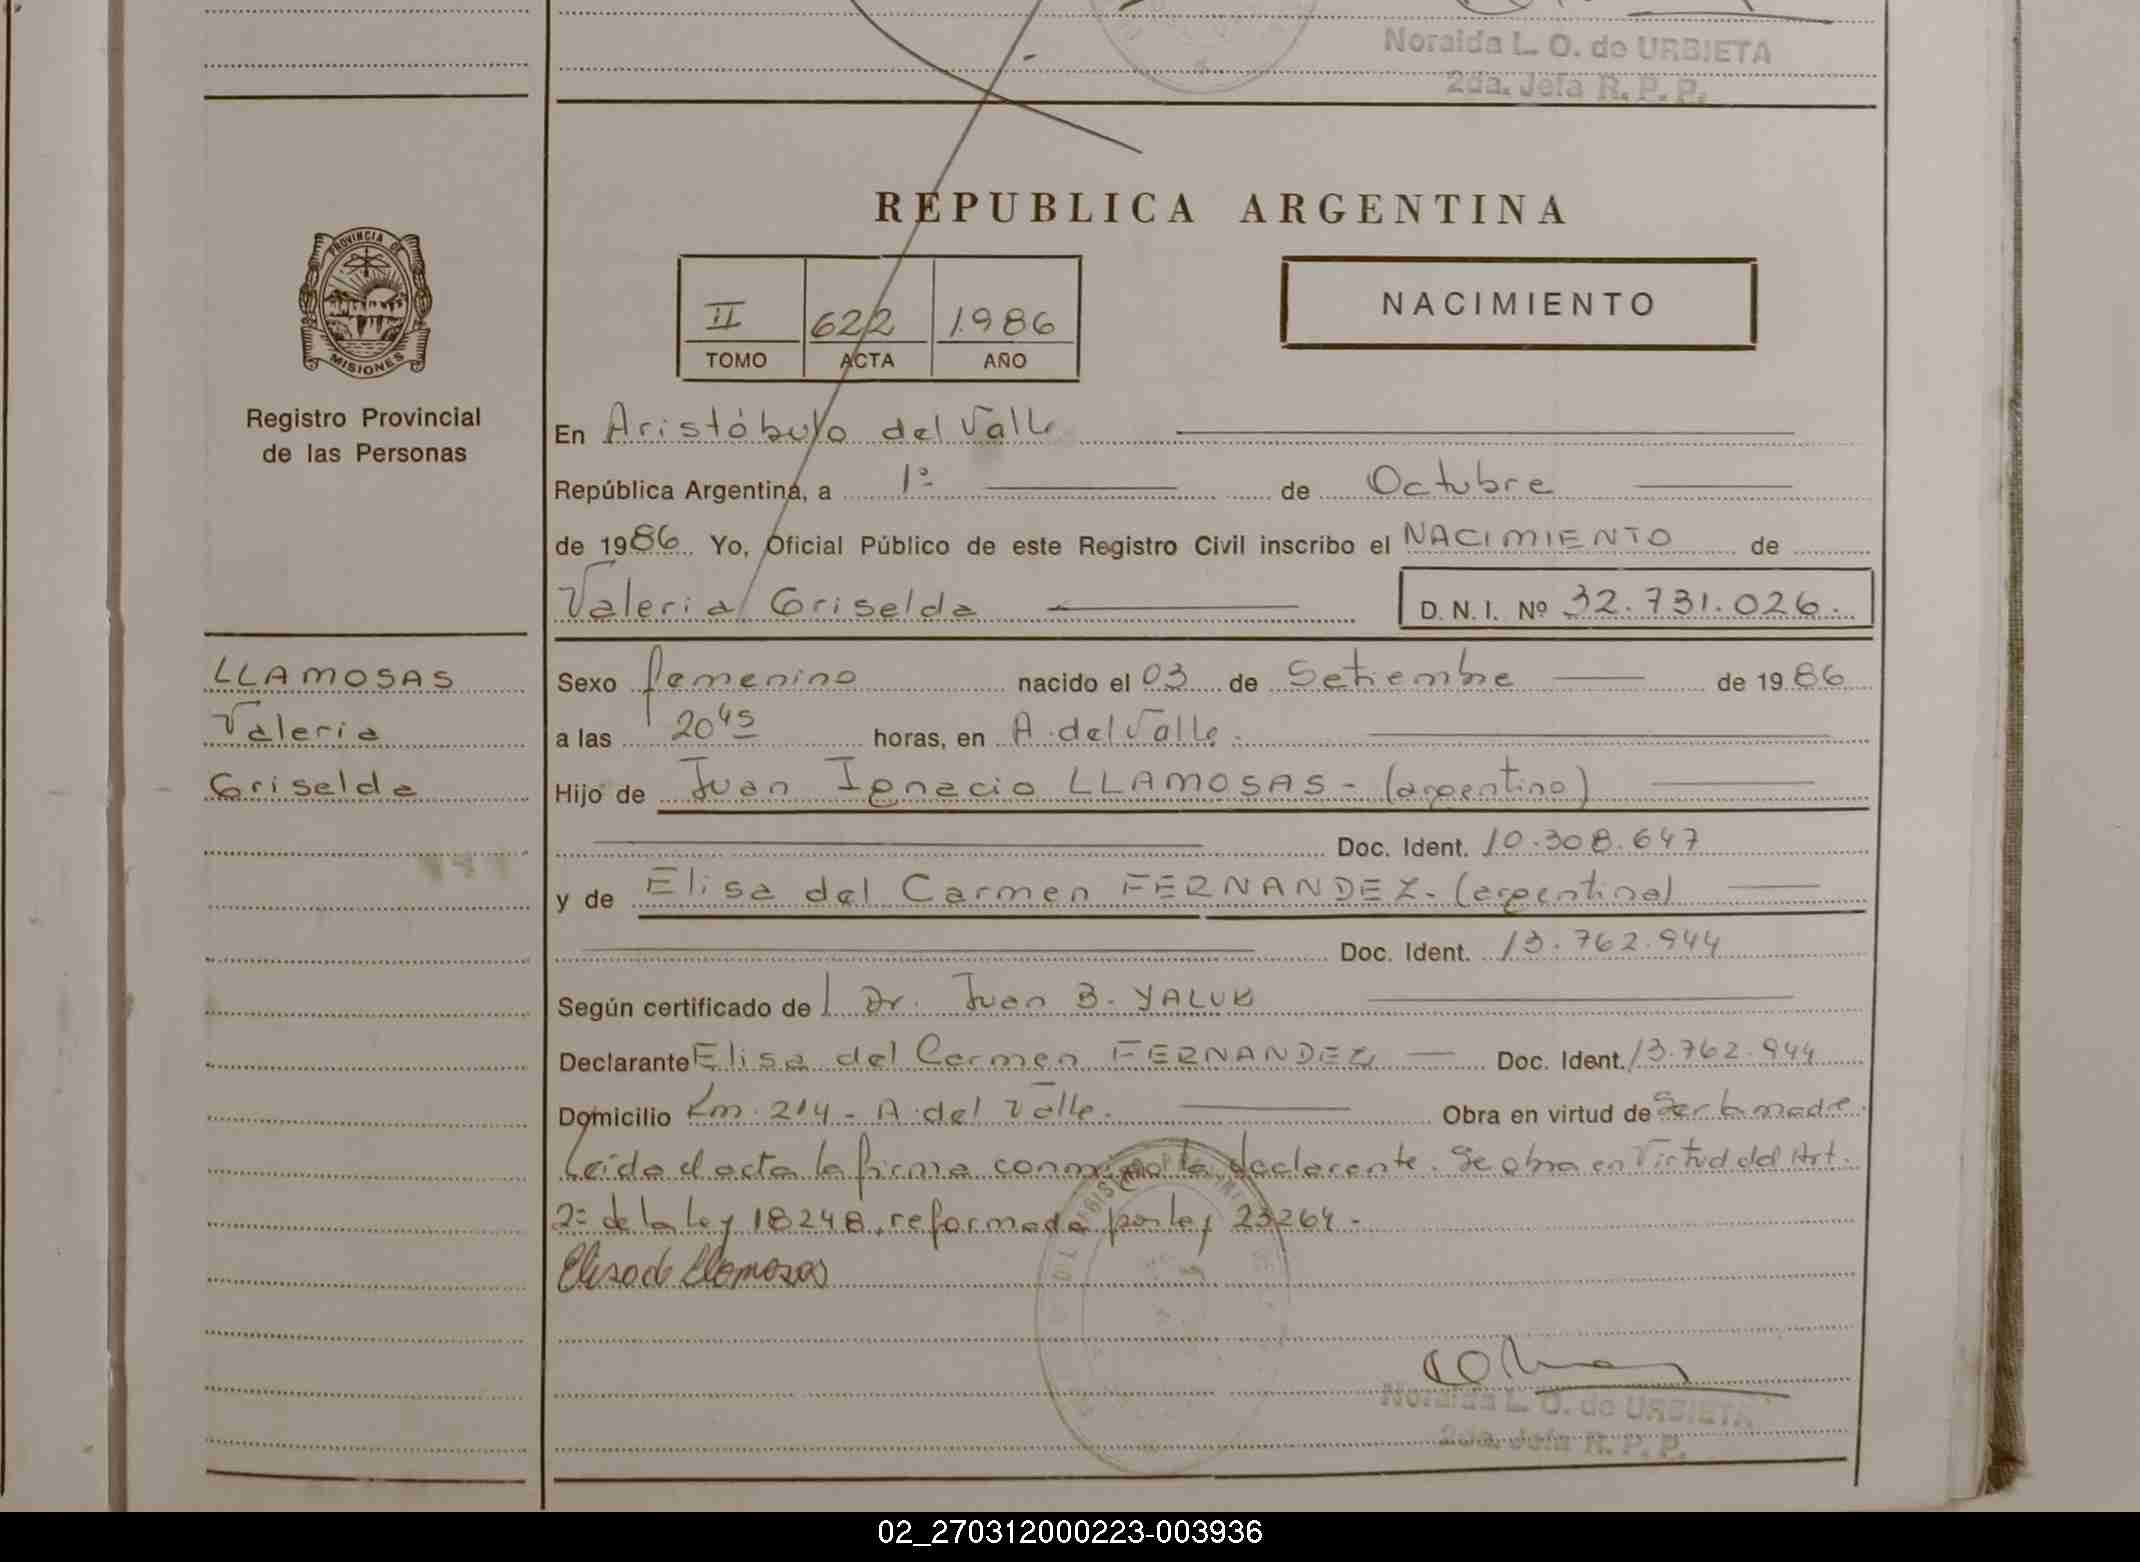 Noraida L. O. de URBIETA
2da. Jefa R. P. P.
REPUBLICA ARGENTINA
PROVINCIA DE
MISIONES
Registro Provincial
de las Personas
II 622 1986
TOMO ACTA AÑO
NACIMIENTO
En Aristóbulo del Valle
República Argentina, a 1º de Octubre
de 1986. Yo, Oficial Público de este Registro Civil inscribo el NACIMIENTO de
Valeria Griselda D. N. I. Nº 32.731.026.
LLAMOSAS
Valeria
Griselda
Sexo femenino nacido el 03 de Setiembre de 1986
a las 20 45 horas, en A. del Valle.
Hijo de Juan Ignacio LLAMOSAS - (argentino)
Doc. Ident. 10.308.647
y de Elisa del Carmen FERNANDEZ - (argentina)
Doc. Ident. 13.762.944
Según certificado de Dr. Juan B. YALUK
Declarante Elisa del Carmen FERNANDEZ Doc. Ident. 13.762.944
Domicilio Km. 214 - A. del Valle. Obra en virtud de Ser la madre.
Leída el acta la firma conmigo la declarante. Se obra en Virtud del Art.
2º de la Ley 18248, reformada por ley 23264 -
Elisa de Llamosas
Noraida L. O. de URBIETA
2da. Jefa R. P. P.
02_270312000223-003936